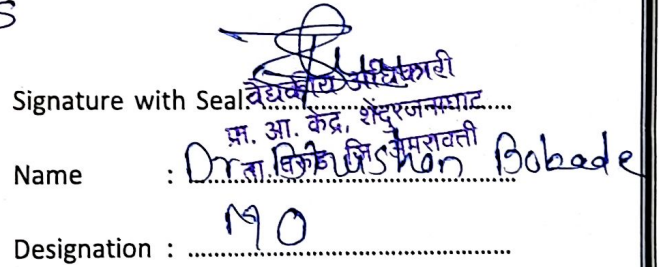 Signature with Seal
वैद्यकीय अधिकारी
प्रा. आ. केंद्र, शेंदुरजनाघाट
ता. जि. अमरावती
Name : Dr. Bobade
Designation : MO